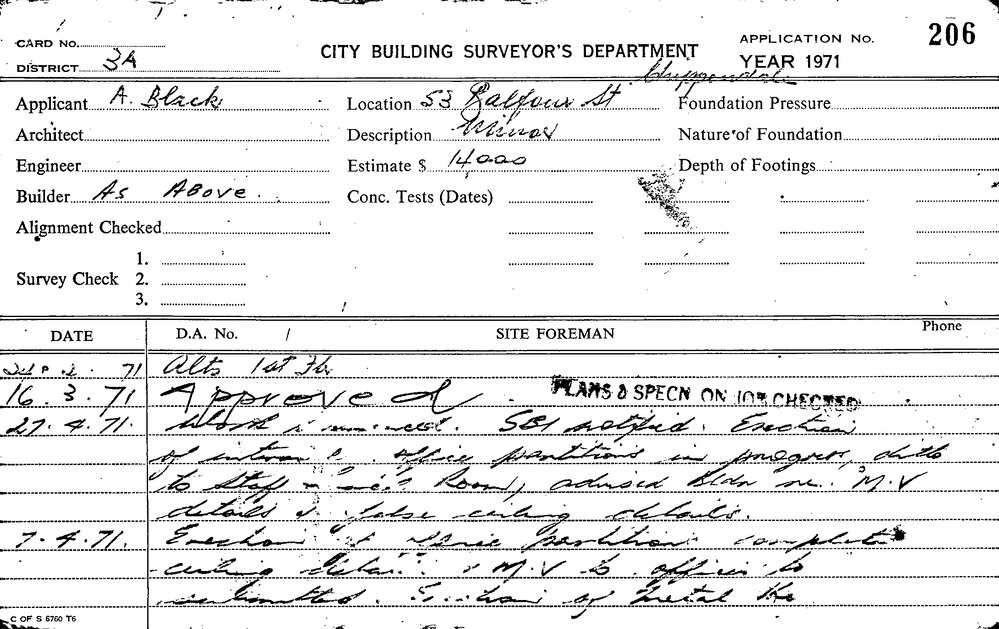 206
CARD NO.
CITY BUILDING SURVEYOR'S DEPARTMENT
APPLICATION NO.
DISTRICT 3A
YEAR 1971
Chippendale
Applicant A. Black
Location 53 Balfour St
Foundation Pressure
Architect
Description Minor
Nature of Foundation
Engineer
Estimate $ 14000
Depth of Footings
Builder As Above.
Conc. Tests (Dates)
Alignment Checked
Survey Check
1.
2.
3.
DATE
D.A. No. /
SITE FOREMAN
Phone
71 Alts 1st Flr
16.3.71 Approved.
PLANS & SPECN ON 10% CHECKED
27.4.71. Work SBI notified. Erection
of office partitions in progress, ditto
to Staff Room, advised Bldr re. M.V
details & false ceiling details.
7.4.71. Erection partitions complete
ceiling & M.V to offices to
submitted. of metal
C OF S 6760 T6